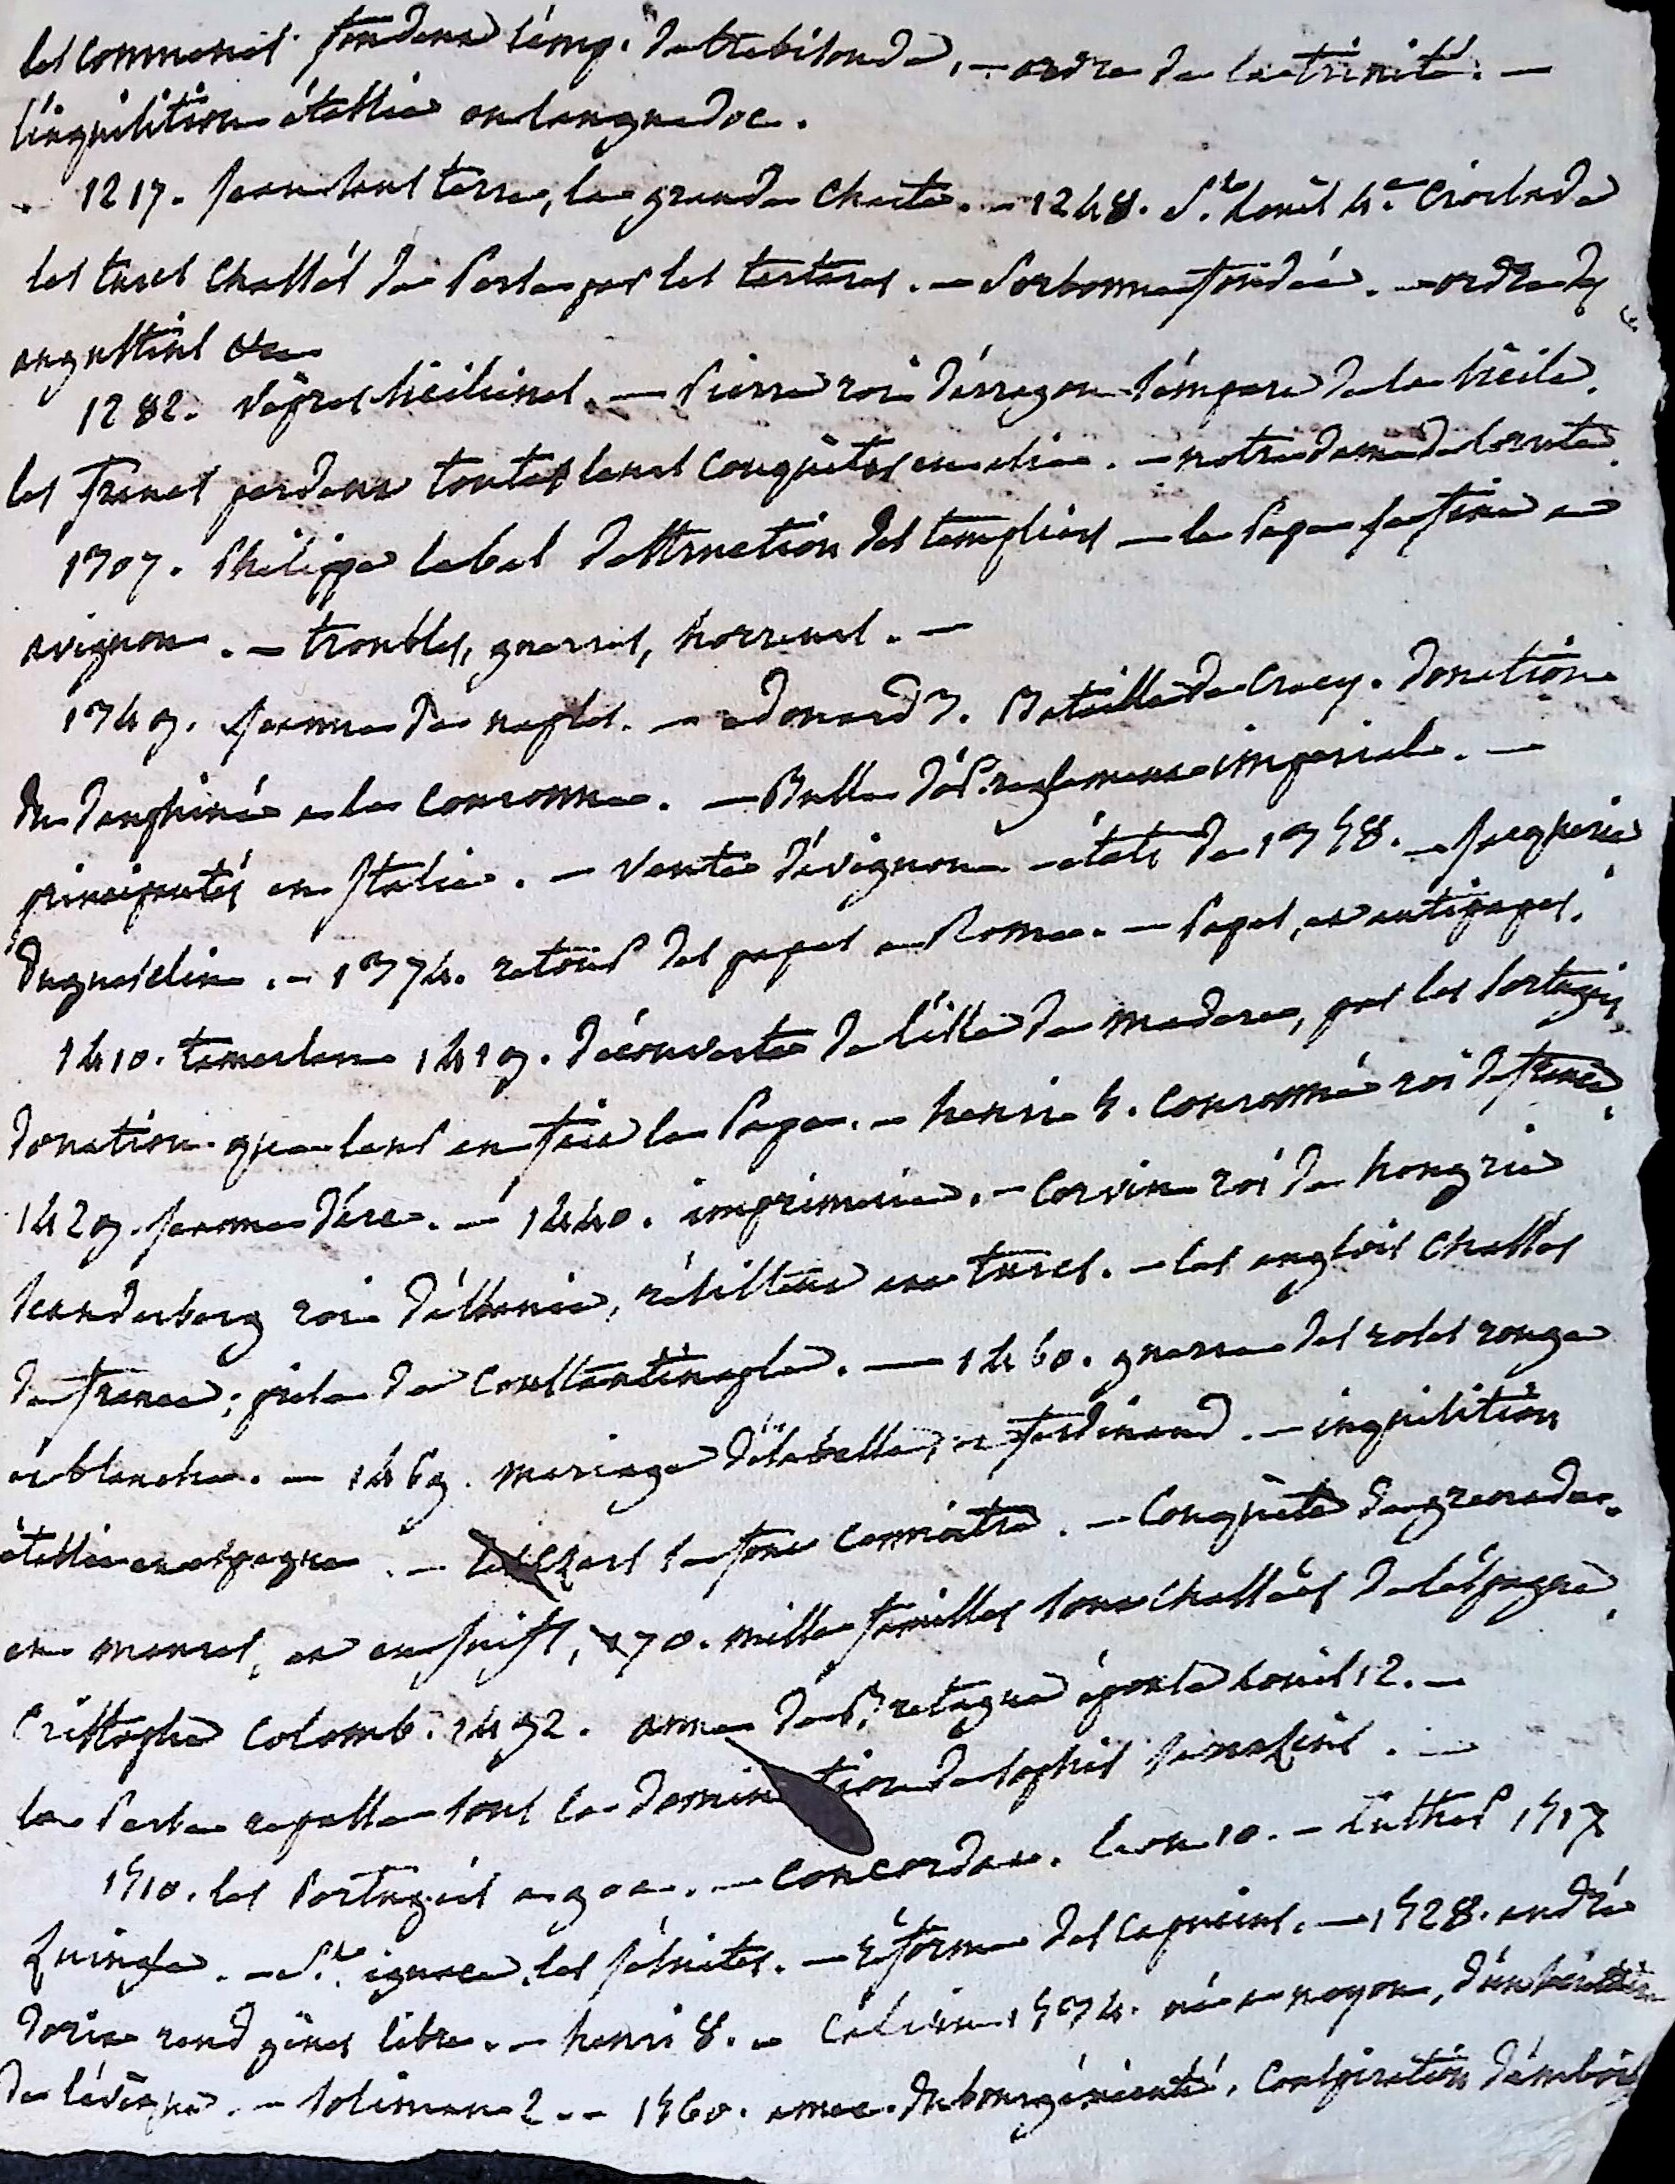 les comnenes fondent l'emp. de trebisonde. — ordre de la trinité. —
l'inquisition établie en languedoc.
1217. jean sans terre, la grande charte. — 1248. St. louis 4.e croisade
les turcs chassés de Perse par les tartares. — Sorbonne fondée. — ordre des
augustins &c
1282. vêpres siciliennes. — Pierre roi d'arragon s'empare de la sicile.
les francs perdent toutes leurs conquêtes en asie. — notre dame de lorette.
1307. Philippe le bel destruction des templiers — le Pape se fixe a
avignon. — troubles, guerres, horreurs. —
1349. jeanne de naples. — edouard 3. Bataille de Crecy. donation
du dauphiné a la couronne. — Bulle d'or reglement imperiale. —
principautés en Italie. — vente d'avignon — états de 1358. — jacquerie
duguesclin. — 1374. retour des papes a Rome. — Papes, et antipapes.
1410. tamerlan 1419. découverte de l'isle de madere, par les Portugais,
donation que leur en fait le Pape. — henri 5. couronné roi de france
1429. jeanne d'arc. — 1440. imprimerie. — Corvin roi de hongrie
scanderberg roi d'albanie, résistent aux turcs. — les anglois chassés
de france; prise de Constantinople. — 1460. guerre des roses rouge
et blanche. — 1469. mariage d'isabelle, et ferdinand. — inquisition
établie en espagne. — les czars se font connoitre. — Conquête de grenade
aux maures, et aux juifs, 170. mille familles sont chassées de l'espagne
Cristophe Colomb. 1492. anne de Bretagne épouse louis 12. —
la Perse repasse sous la domination de sophis
1510. les Portugais a goa. — Concordat. leon 10. — Luther 1517
Zuingle. — St. ignace, les jésuites. — réforme des capucins. — 1528. andré
doria rend gênes libre. — henri 8. — Calvin 1534. né a noyon,
de l'évêque. — soliman 2. — 1560. anne dubourg Conspiration d'amboise